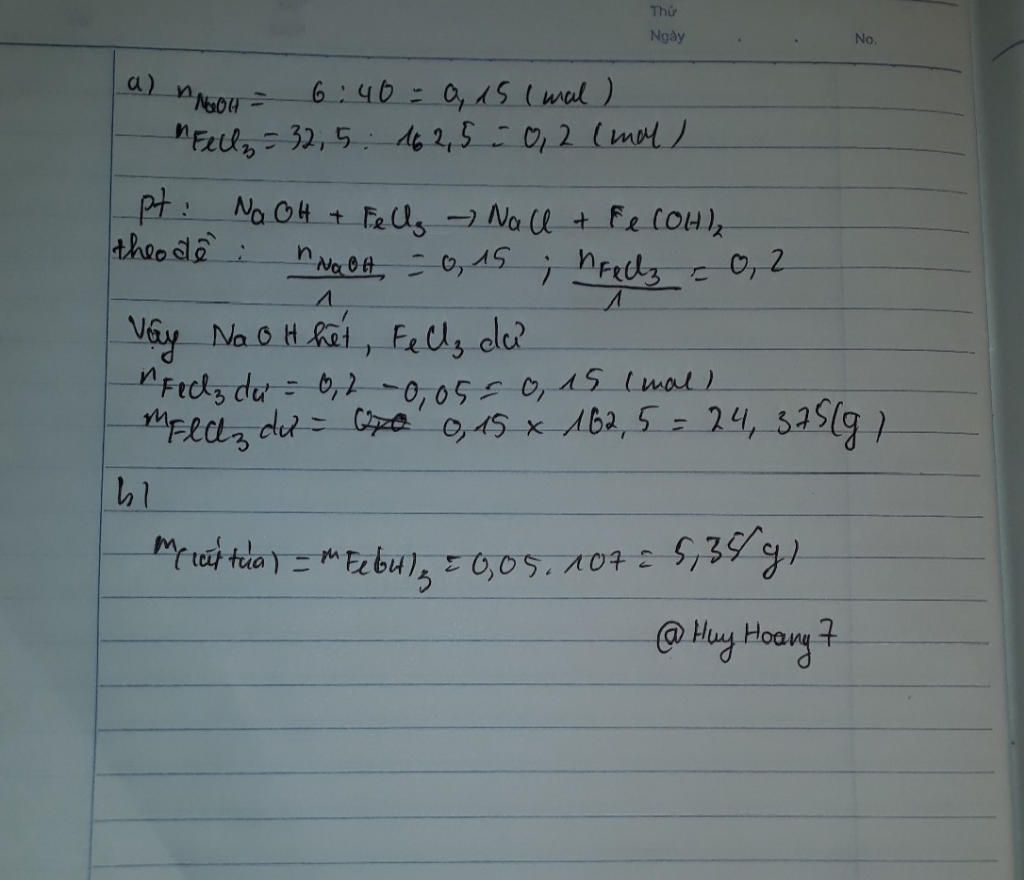 Thứ
Ngày . . No.
a) nNaOH = 6 : 40 = 0,15 (mol)
nFeCl3 = 32,5 : 162,5 = 0,2 (mol)
pt: NaOH + FeCl3 → NaCl + Fe(OH)2
theo đề : nNaOH/1 = 0,15 ; nFeCl3/1 = 0,2
Vậy NaOH hết, FeCl3 dư
nFeCl3 dư = 0,2 - 0,05 = 0,15 (mol)
mFeCl3 dư = 0,15 x 162,5 = 24,375(g)
b)
m(kết tủa) = mFe(OH)3 = 0,05. 107 = 5,35(g)
@HuyHoang7